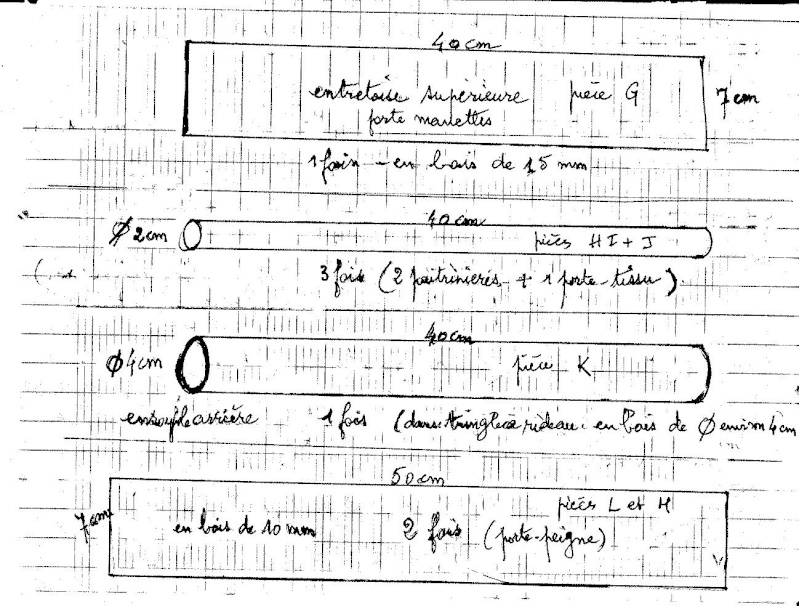 40cm
entretoise supérieure pièce G
porte manettes
7cm
1 fois - en bois de 15 mm
40cm
Ø 2cm pièces H I + J
3 fois (2 poitrinières + 1 porte-tissu)
40cm
Ø4cm pièce K
ensouple arrière 1 fois (dans tringle à rideau en bois de Ø environ 4 cm
50cm
7cm pièces L et M
en bois de 10 mm 2 fois (porte-peigne)